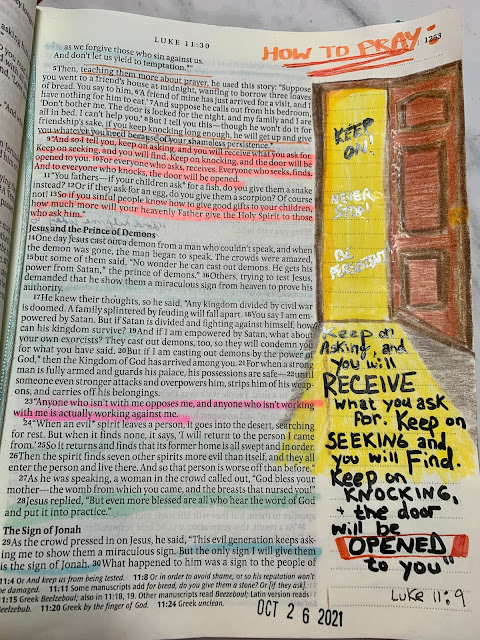 LUKE 11:30
1253
HOW TO PRAY:
as we forgive those who sin against us.
And don't let us yield to temptation.*"
5Then, teaching them more about prayer, he used this story: "Suppose
you went to a friend's house at midnight, wanting to borrow three loaves
of bread. You say to him, 6'A friend of mine has just arrived for a visit, and I
have nothing for him to eat.' 7And suppose he calls out from his bedroom,
'Don't bother me. The door is locked for the night, and my family and I are
all in bed. I can't help you.' 8But I tell you this—though he won't do it for
friendship's sake, if you keep knocking long enough, he will get up and give
you whatever you need because of your shameless persistence.*
9"And so I tell you, keep on asking, and you will receive what you ask for.
Keep on seeking, and you will find. Keep on knocking, and the door will be
opened to you. 10For everyone who asks, receives. Everyone who seeks, finds.
And to everyone who knocks, the door will be opened.
11"You fathers—if your children ask* for a fish, do you give them a snake
instead? 12Or if they ask for an egg, do you give them a scorpion? Of course
not! 13So if you sinful people know how to give good gifts to your children,
how much more will your heavenly Father give the Holy Spirit to those
who ask him."
Jesus and the Prince of Demons
14One day Jesus cast out a demon from a man who couldn't speak, and when
the demon was gone, the man began to speak. The crowds were amazed,
15but some of them said, "No wonder he can cast out demons. He gets his
power from Satan,* the prince of demons." 16Others, trying to test Jesus,
demanded that he show them a miraculous sign from heaven to prove his
authority.
17He knew their thoughts, so he said, "Any kingdom divided by civil war
is doomed. A family splintered by feuding will fall apart. 18You say I am em-
powered by Satan. But if Satan is divided and fighting against himself, how
can his kingdom survive? 19And if I am empowered by Satan, what about
your own exorcists? They cast out demons, too, so they will condemn you
for what you have said. 20But if I am casting out demons by the power of
God,* then the Kingdom of God has arrived among you. 21For when a strong
man is fully armed and guards his palace, his possessions are safe—22until
someone even stronger attacks and overpowers him, strips him of his weap-
ons, and carries off his belongings.
23"Anyone who isn't with me opposes me, and anyone who isn't working
with me is actually working against me.
24"When an evil* spirit leaves a person, it goes into the desert, searching
for rest. But when it finds none, it says, 'I will return to the person I came
from.' 25So it returns and finds that its former home is all swept and in order.
26Then the spirit finds seven other spirits more evil than itself, and they all
enter the person and live there. And so that person is worse off than before."
27As he was speaking, a woman in the crowd called out, "God bless your
mother—the womb from which you came, and the breasts that nursed you!"
28Jesus replied, "But even more blessed are all who hear the word of God
and put it into practice."
The Sign of Jonah
29As the crowd pressed in on Jesus, he said, "This evil generation keeps ask-
ing me to show them a miraculous sign. But the only sign I will give them
is the sign of Jonah. 30What happened to him was a sign to the people of
11:4 Or And keep us from being tested. 11:8 Or in order to avoid shame, or so his reputation won't
be damaged. 11:11 Some manuscripts add for bread, do you give them a stone? Or [if they ask].
11:15 Greek Beelzeboul; also in 11:18, 19. Other manuscripts read Beezeboul; Latin version reads
Beelzebub. 11:20 Greek by the finger of God. 11:24 Greek unclean.
KEEP
ON!
NEVER
STOP!
BE
PERSISTENT!
Keep on
Asking, and
you will
RECEIVE
what you ask
for. Keep on
SEEKING and
you will Find.
Keep on
KNOCKING,
+ the door
will be
OPENED
to you"
Luke 11:9
OCT 26 2021